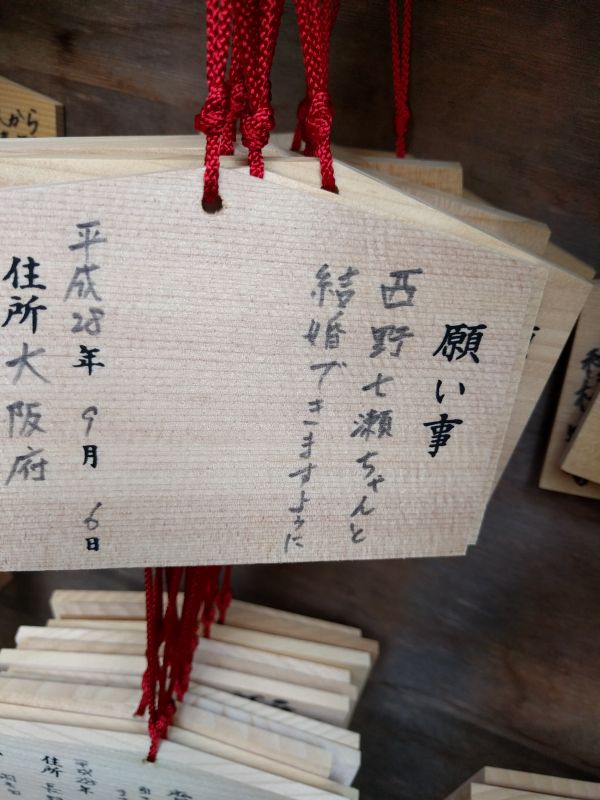 願い事
西野七瀬ちゃんと
結婚できますように
平成28年9月6日
住所大阪府
から
住所
平成